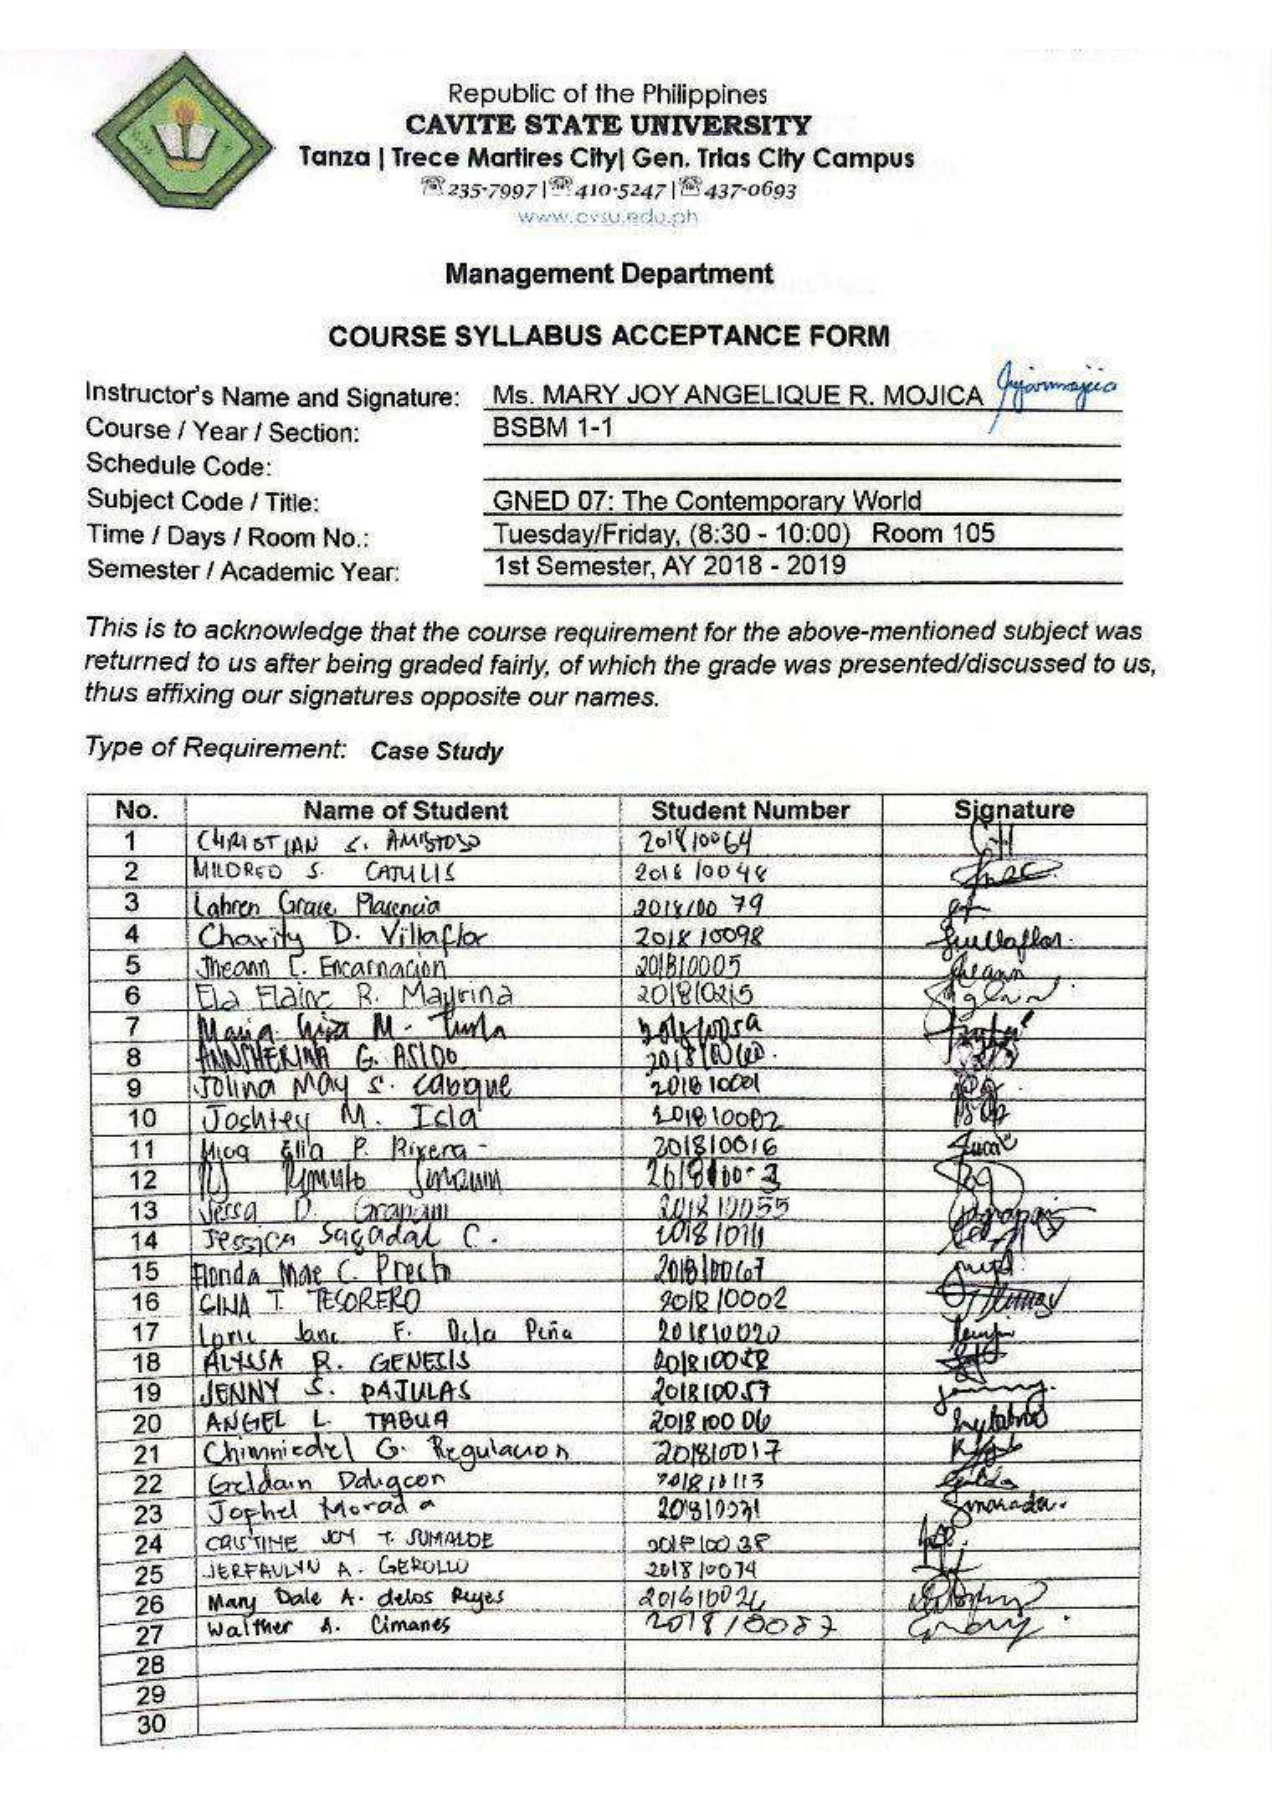 Republic of the Philippines
CAVITE STATE UNIVERSITY
Tanza | Trece Martires City| Gen. Trias City Campus
☎235-7997|☎410-5247|☎437-0693
www.cvsu.edu.ph
Management Department
COURSE SYLLABUS ACCEPTANCE FORM
Instructor's Name and Signature: Ms. MARY JOY ANGELIQUE R. MOJICA
Course / Year / Section: BSBM 1-1
Schedule Code:
Subject Code / Title: GNED 07: The Contemporary World
Time / Days / Room No.: Tuesday/Friday, (8:30 - 10:00) Room 105
Semester / Academic Year: 1st Semester, AY 2018 - 2019
This is to acknowledge that the course requirement for the above-mentioned subject was
returned to us after being graded fairly, of which the grade was presented/discussed to us,
thus affixing our signatures opposite our names.
Type of Requirement: Case Study
No. Name of Student Student Number Signature
1 CHRISTIAN S. AMISTOSO 201810064
2 MILDRED S. CATULIS 201810048
3 Lahren Grace Plasencia 201810079
4 Charity D. Villaflor 201810098 Villaflor
5 Jheann C. Encarnacion 201810005 Jheann
6 Ela Elaine R. Mayrina 201810215
7 Maria M.
8 ANNSHERINA G. ASIDO
9 Jolina May S. Cabque 201810001
10 Joshtey M. Isla 201810082
11 Mica Ella P. Rivera 201810016
12 Romulo
13 Jessa D. 201810055
14 Jessica Sagadal C.
15 Florida Mae C. 201810067
16 GINA T. TESORERO 201810002
17 Lorie Jane F. Dela Peña 201810020
18 ALYSSA R. GENESIS 201810058
19 JENNY S. PAJULAS 201810057 Jenny
20 ANGEL L. TABUA 201810006
21 Chimniediel G. Regulacion 201810017
22 Geldain Daligcon 201810113
23 Jophel Morada 201810031 Jmorada
24 CRISTINE JOY T. SUMALDE 201810038
25 JERFAULYN A. GEROLLO 201810074
26 Mary Dale A. delos Reyes
27 Walther A. Cimanes 201810087
28
29
30